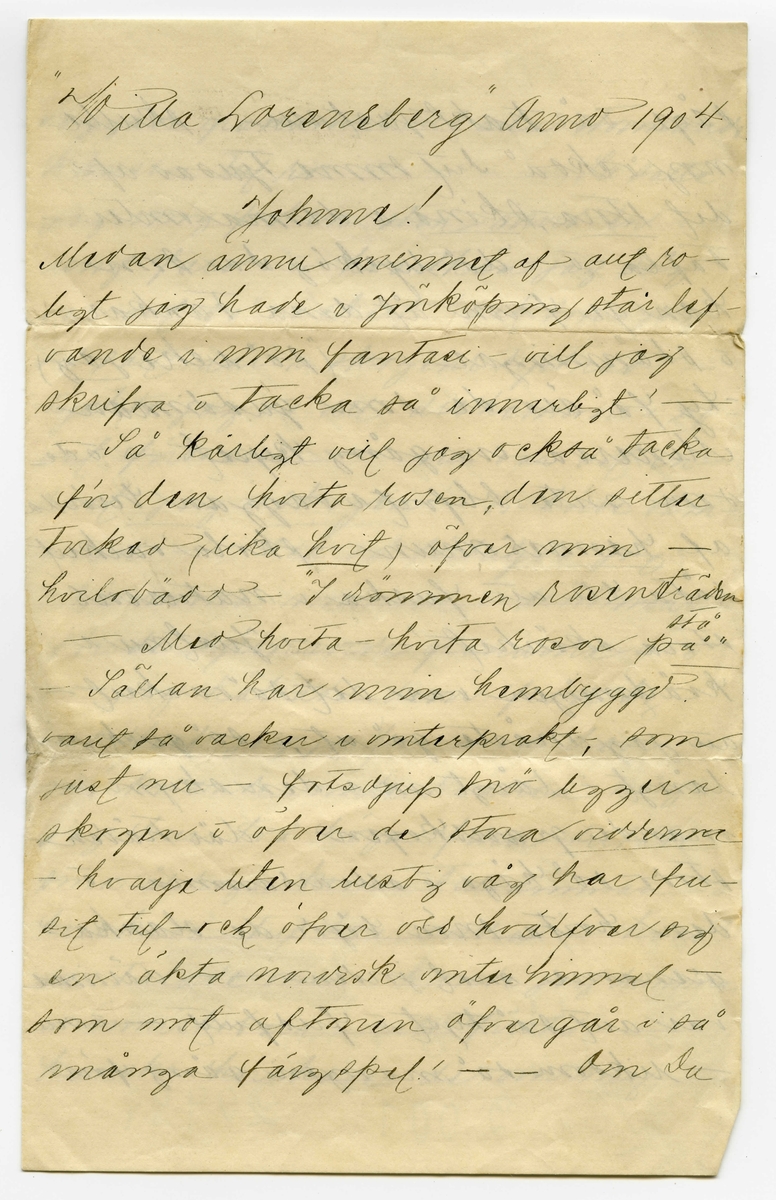 "Villa Lorensberg" Anno 1904
Johnne!
Medan ännu minnet af allt ro-
ligt jag hade i Jönköping står lef-
vande i min fantasi – vill jag
skrifva o tacka så innerligt! —
– Så kärligt vill jag också tacka
för den hvita rosen, den sitter
torkad, lika hvit, öfver min —
hvilobädd – "I drömmen rosenträden
stå
— Med hvita – hvita rosor på"
– Sällan har min hembyggd
varit så vacker i vinterprakt, som
just nu – fotsdjup snö ligger i
skogen o öfver de stora vidderna
– hvarje liten lustig våg har fru-
sit till – ock öfver oss hvälfver sig
en äkta nordisk vinterhimmel –
som mot aftonen öfvergår i så
många färgspel! — – Om Du